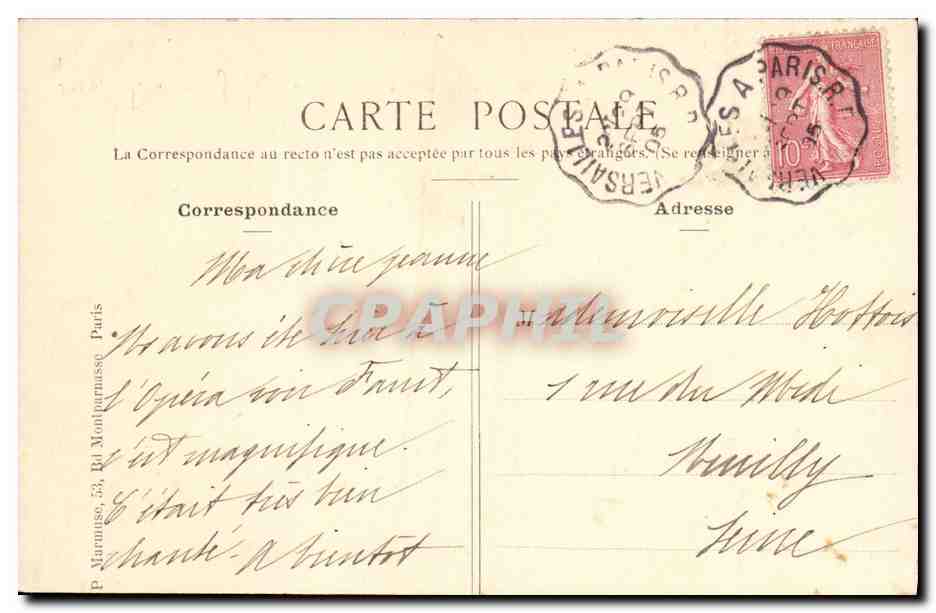 CARTE POSTALE
La Correspondance au recto n'est pas acceptée par tous les pays étrangers. (Se renseigner à
Correspondance
Ma chère Jeanne
Ns avons été hier à
l'Opéra voir Faust,
c'est magnifique.
C'était très bien
chanté - A bientot
P. Marmuse, 53, Bd Montparnasse Paris
Adresse
Mademoiselle Hottois
1 rue du Midi
Neuilly
Seine
VERSAILLES A PARIS R.
05
VERSAILLES A PARIS. R.
05
10
CPAPHIL